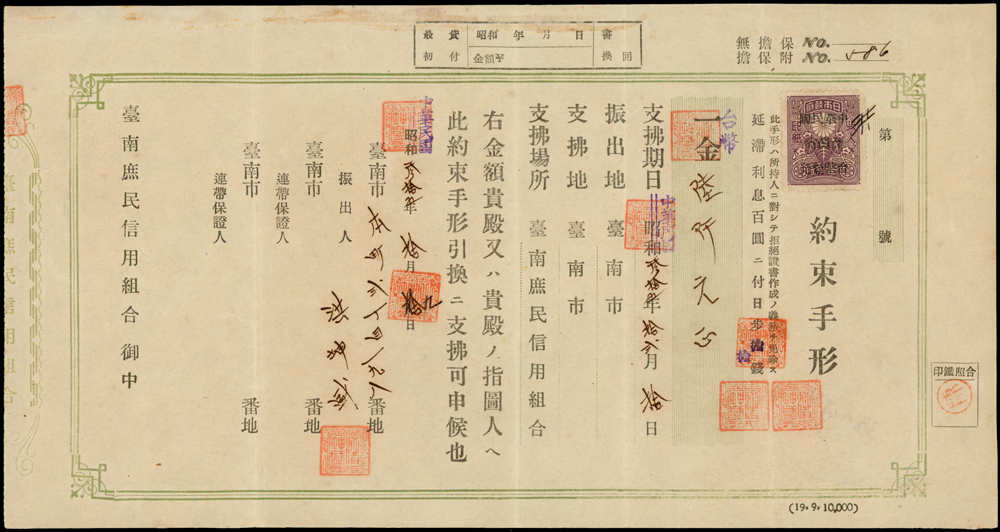 最初
貸付
昭和 年 月 日
金額¥
書換 回
無擔保 No.
擔保附 No. 586
第 號
日本政府
中華民國
約束手形
此手形ハ所持人ニ對シテ拒絕證書作成ノ義務ヲ免除ス
延滯利息百圓ニ付日步拾錢
拾
台幣
一金陸仟元正
支拂期日 昭和參拾四年拾弍月拾日
中華民國
振出地 臺南市
支拂地 臺南市
支拂場所 臺南庶民信用組合
右金額貴殿又ハ貴殿ノ指圖人ヘ
此約束手形引換ニ支拂可申候也
中華民國
昭和參拾四年拾月拾九日
臺南市 番地
振出人
臺南市 番地
連帶保證人
臺南市 番地
連帶保證人
臺南庶民信用組合御中
臺南庶民信用組合
合照鑑印
(19.9.10,000)